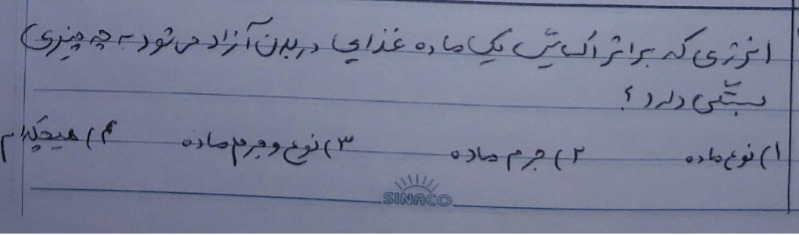 انرژی که بر اثر اکسایش یک ماده غذایی در بدن آزاد می شود به چه چیزی
بستگی دارد؟
۱) نوع ماده ۲) جرم ماده ۳) نوع و جرم ماده ۴) هیچکدام
SINACO